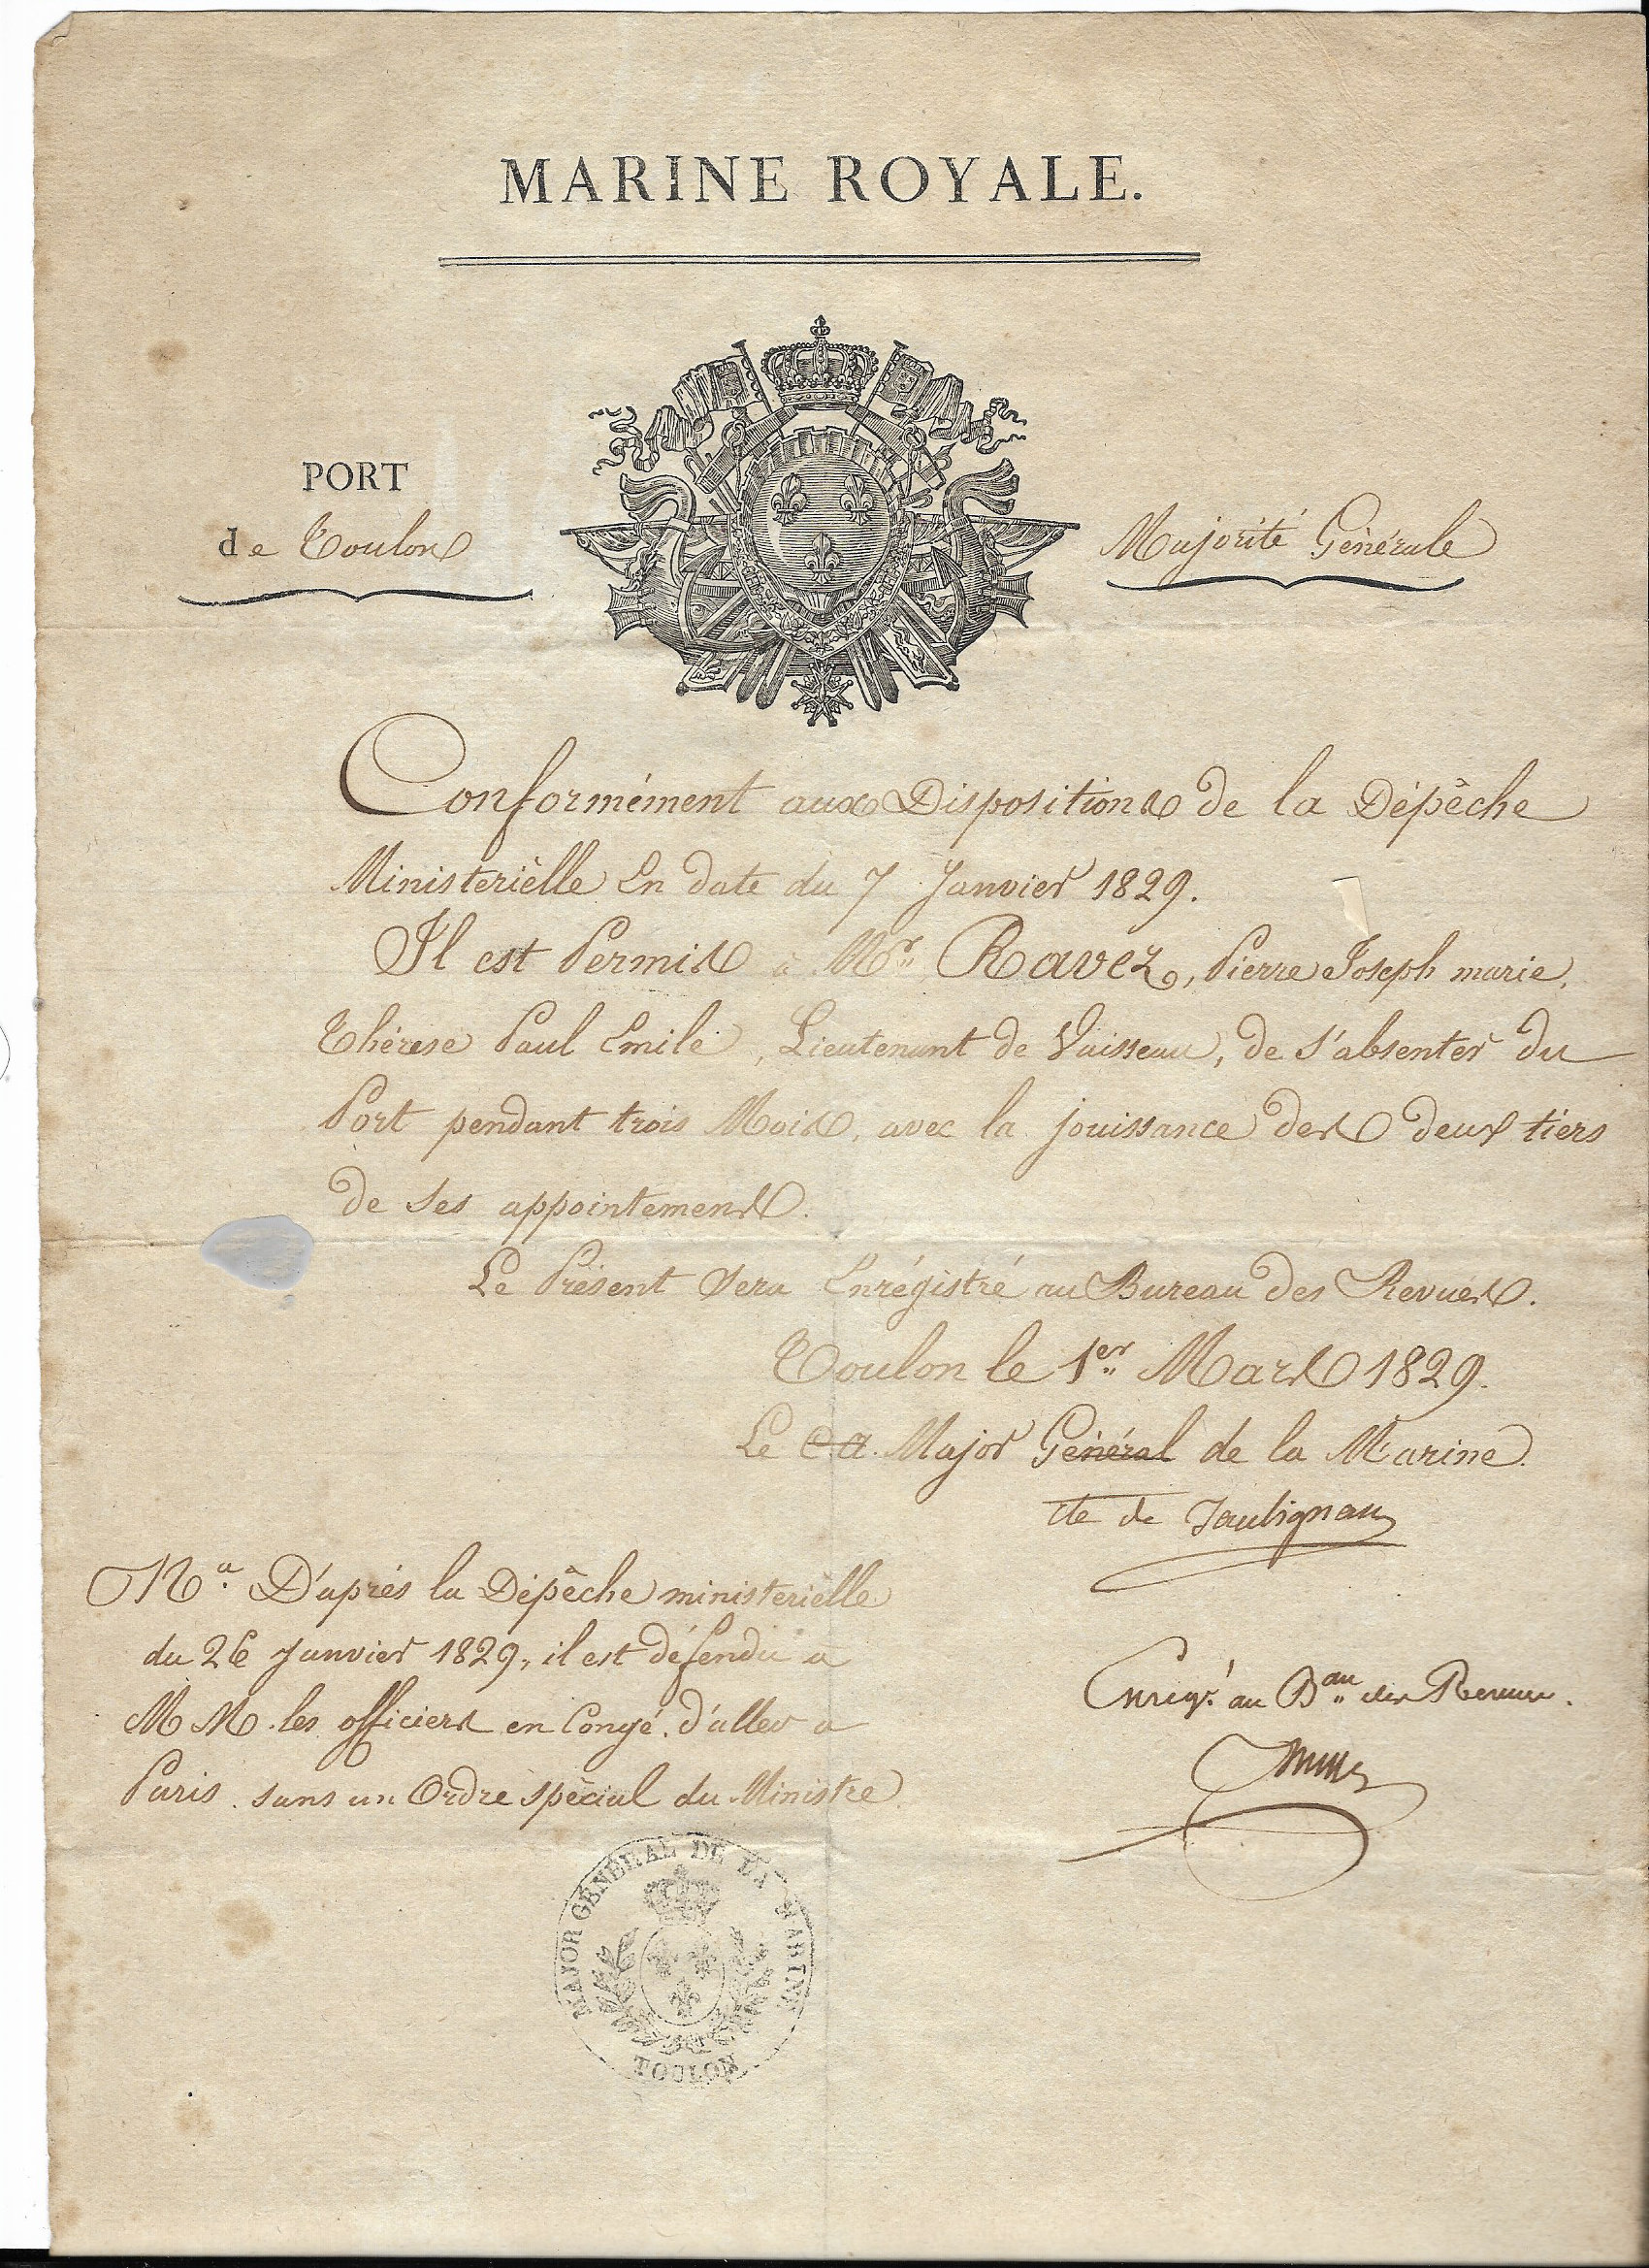 MARINE ROYALE.
PORT
de Toulon
Majorité Générale
Conformément aux Dispositions de la Dépêche
Ministerièlle En date du 7 Janvier 1829.
Il est Permis à Mr. Ravez, Pierre Joseph marie,
Thérese Paul Emile, Lieutenant de Vaisseau, de s'absenter du
Port pendant trois Mois, avec la jouissance des deux tiers
de ses appointemens.
Le Présent Sera Enrégistré au Bureau des Revues.
Toulon le 1er Mars 1829.
Le C.A. Major Général de la Marine.
Cte de
Na. D'après la Dépêche ministerièlle
du 26 Janvier 1829, il est défendu a
MM. les officiers en Congé d'aller a
Paris sans un Ordre spécial du Ministre.
Enregé. au Bau. des Revues.
MAJOR GÉNÉRAL DE LA MARINE
TOULON